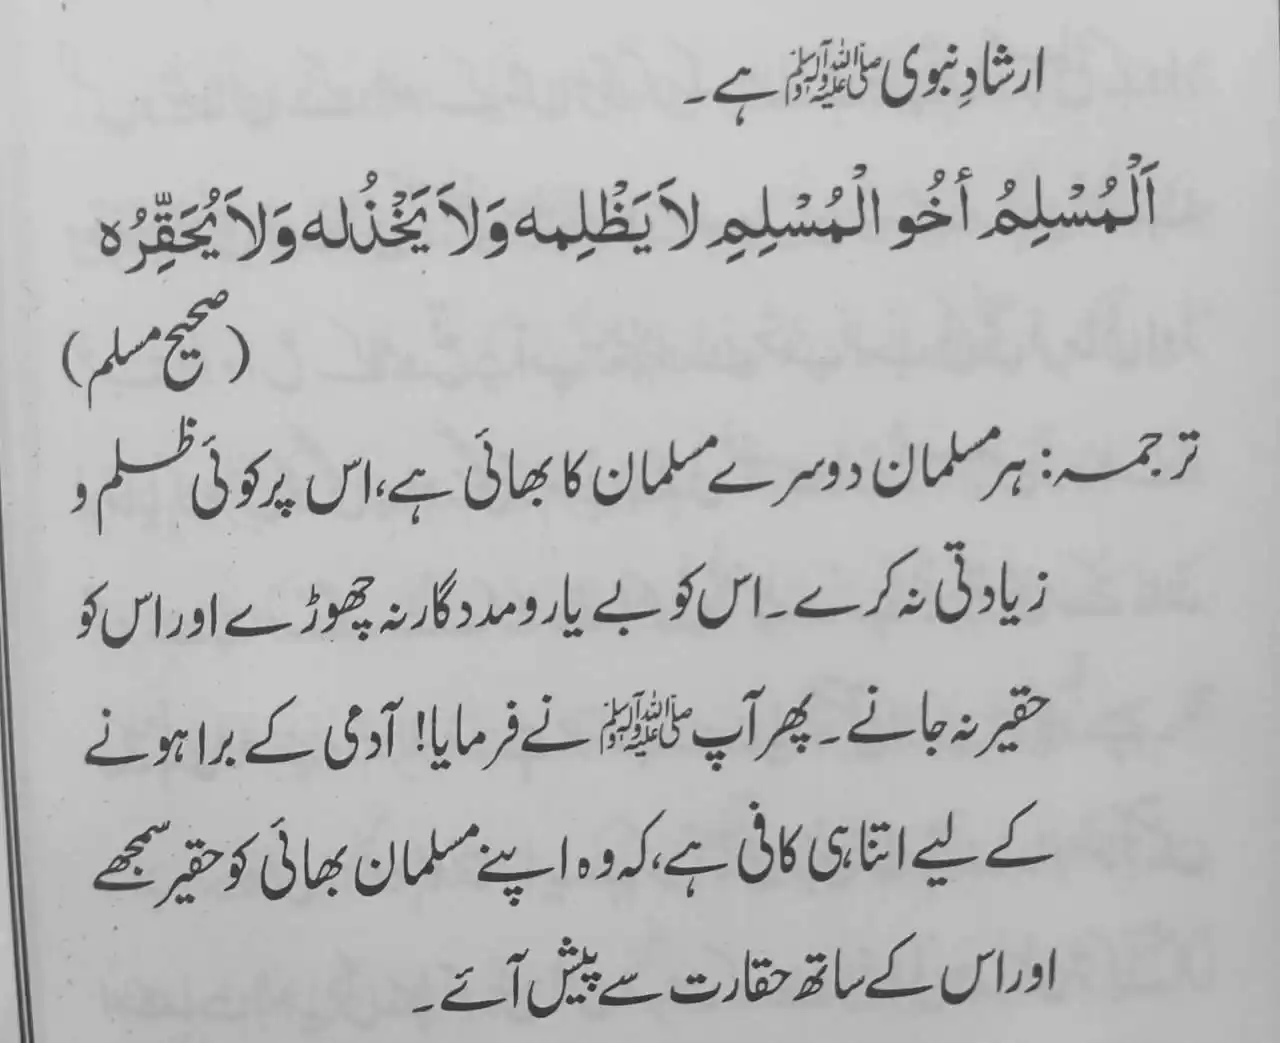 ارشادِ نبوی ﷺ ہے۔
اَلْمُسْلِمُ أخُو الْمُسْلِمِ لاَ يَظْلِمه وَلاَ يَخْذُله وَلاَ يُحَقِّرُه
(صحیح مسلم)
ترجمہ: ہر مسلمان دوسرے مسلمان کا بھائی ہے، اس پر کوئی ظلم و
زیادتی نہ کرے۔ اس کو بے یار و مددگار نہ چھوڑے اور اس کو
حقیر نہ جانے۔ پھر آپ ﷺ نے فرمایا! آدمی کے برا ہونے
کے لیے اتنا ہی کافی ہے، کہ وہ اپنے مسلمان بھائی کو حقیر سمجھے
اور اس کے ساتھ حقارت سے پیش آئے۔